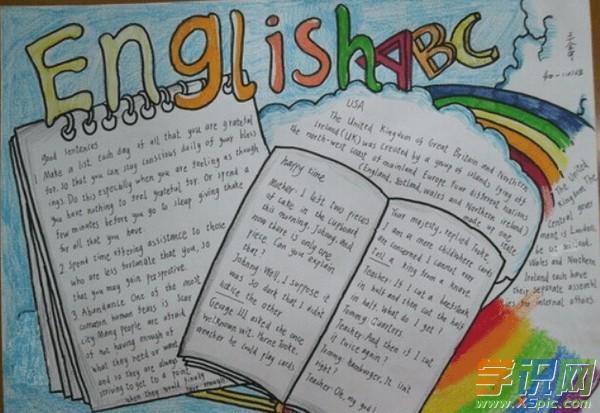 English ABC
Good sentences
1 Make a list each day of all that you are grateful
for. So that you can stay conscious daily of your bless
ings. Do this especially when you are feeling as though
you have nothing to feel grateful for. Or spend a
few minutes before you go to sleep giving thake
for all that you have.
2. Spend time offering assistance to those
who are less fortunate that you, so
that you may gain perspective.
3 Abundance One of the most
common human fears is scar
city. Many people are afraid
of not having enough of
what they need or want
and so they are always
striving to get to a point
when they would finely
have enough
happy time
Mother: I left two pieces
of cake in the cupboard
this morning, Johnny, And
now there is only one
piece. Can you explain
that?
Johnny: Well, I suppose it
was so dark that I didn't
the other
George III asked the once
well known wit. Horne Tooke,
wheather he could play cards
Your majesty, replied Tooke,
I am a mere child where cards
are concerned I cannot even
Tell a king from a knave.
Teacher: If I cut a beefsteak
in half and then cut the half
in half. What do I get?
Tommy: Quarters
Teacher: And then if I cut
it twice again?
Tommy: Hamburger, It isn't
right?
Teacher: Oh, my god!
USA
The United Kingdom of Great Britain and Northern
Ireland (UK) was created by a group of islands lying off
the north-west coast of mainland Europe Four different nations
(England, Scotland, Wales and Northern Ireland)
made up one
The United
Kingdom The
Central gover
ment is London,
Wales and Northern
Ireland each have
their separate assembl
ies for internal affairs.
学识网
www.XSpic.com